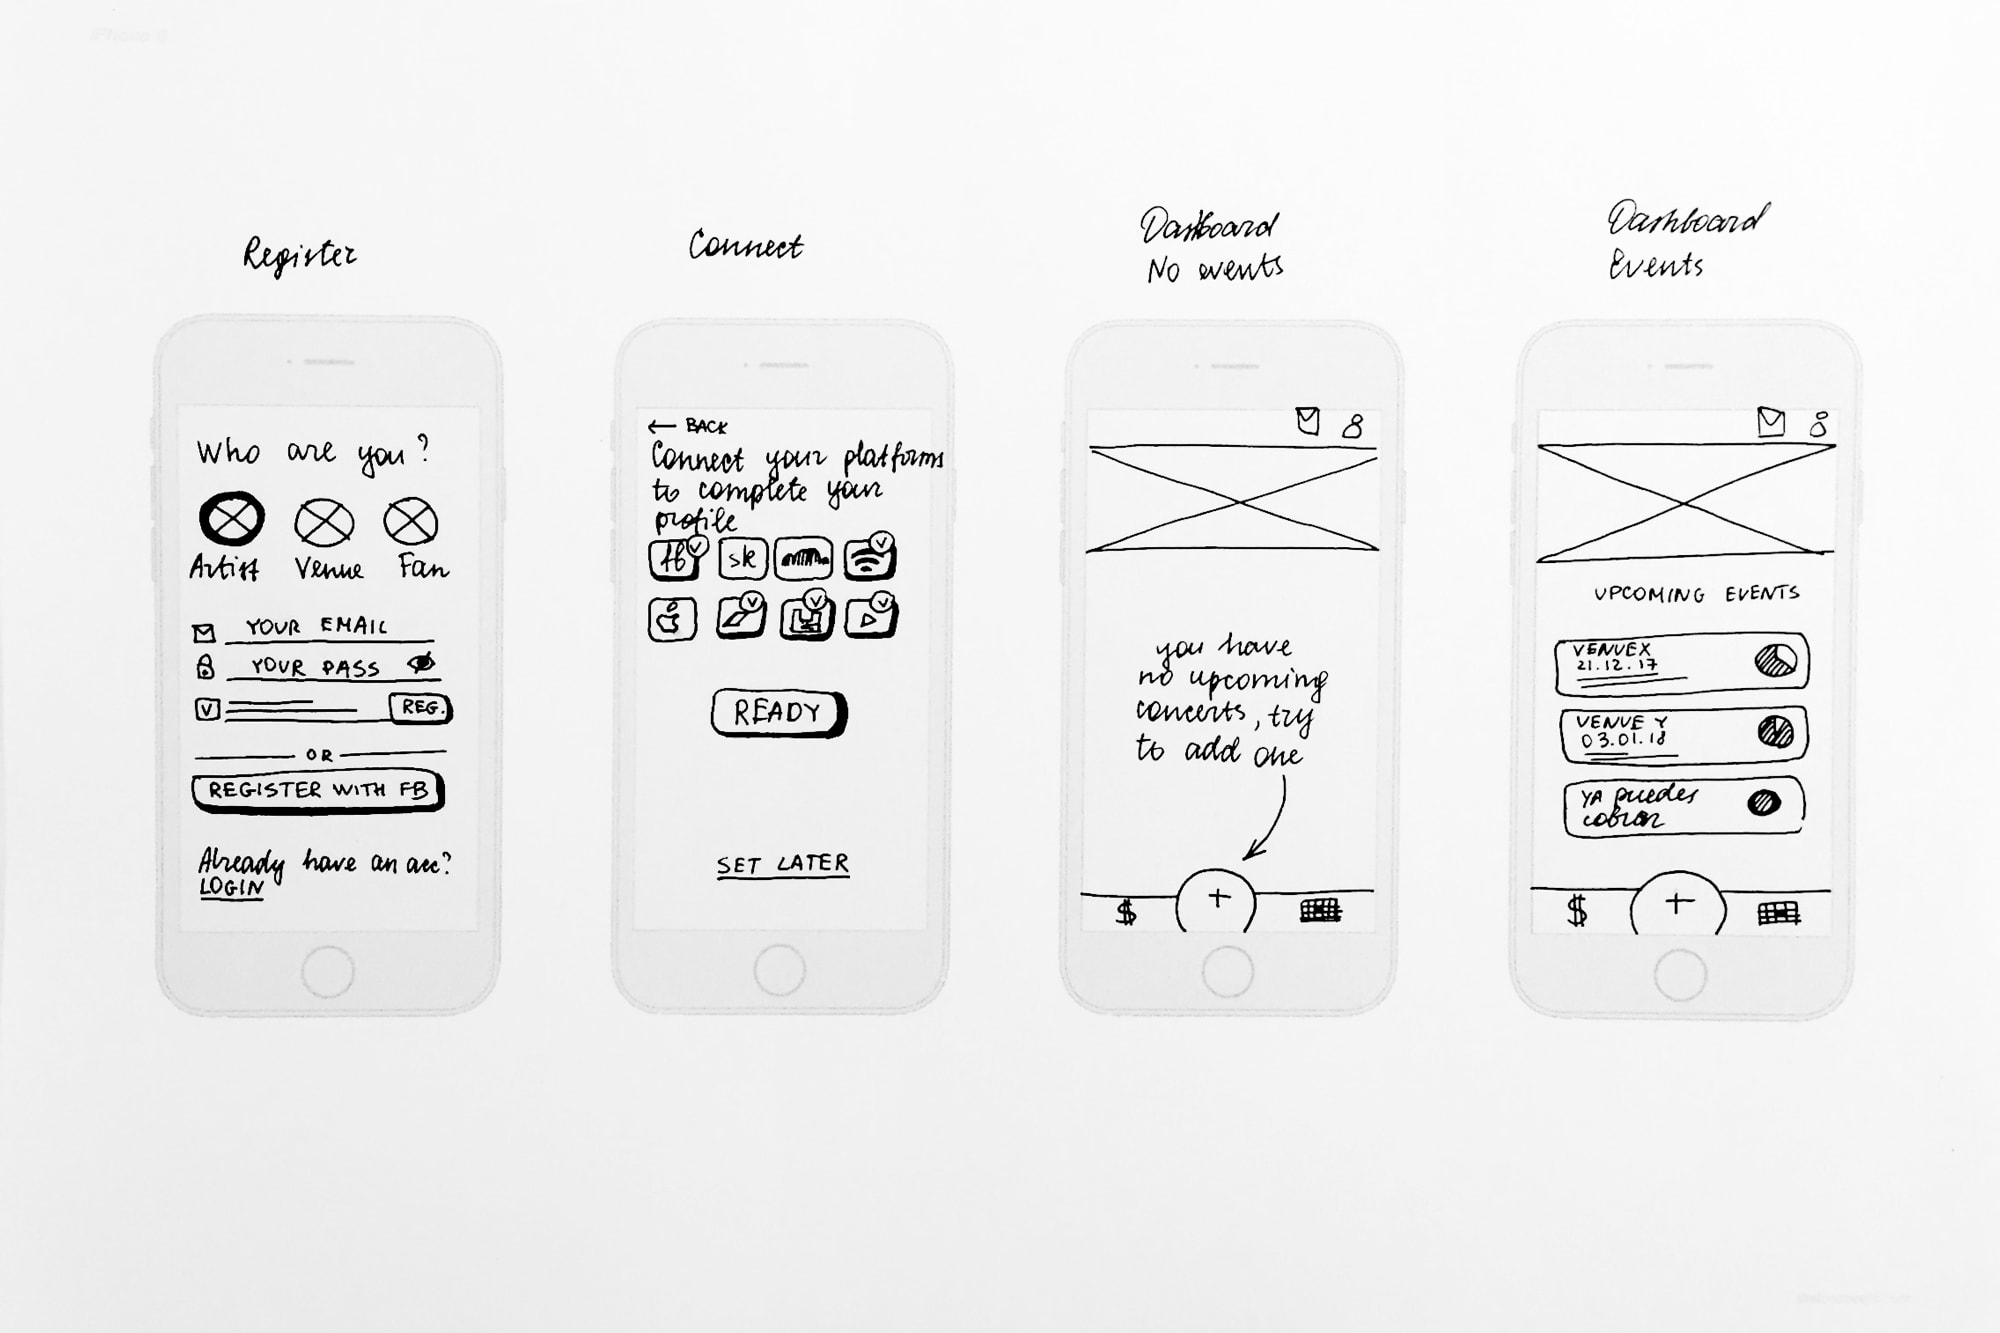 Register
Who are you?
Artist Venue Fan
YOUR EMAIL
YOUR PASS
REG.
OR
REGISTER WITH FB
Already have an acc?
LOGIN
Connect
← BACK
Connect your platforms
to complete your
profile
fb
sk
READY
SET LATER
Dashboard
No events
you have
no upcoming
concerts, try
to add one
$ +
Dashboard
Events
UPCOMING EVENTS
VENUE X
21.12.17
VENUE Y
03.01.18
YA puedes
cobrar
$ +